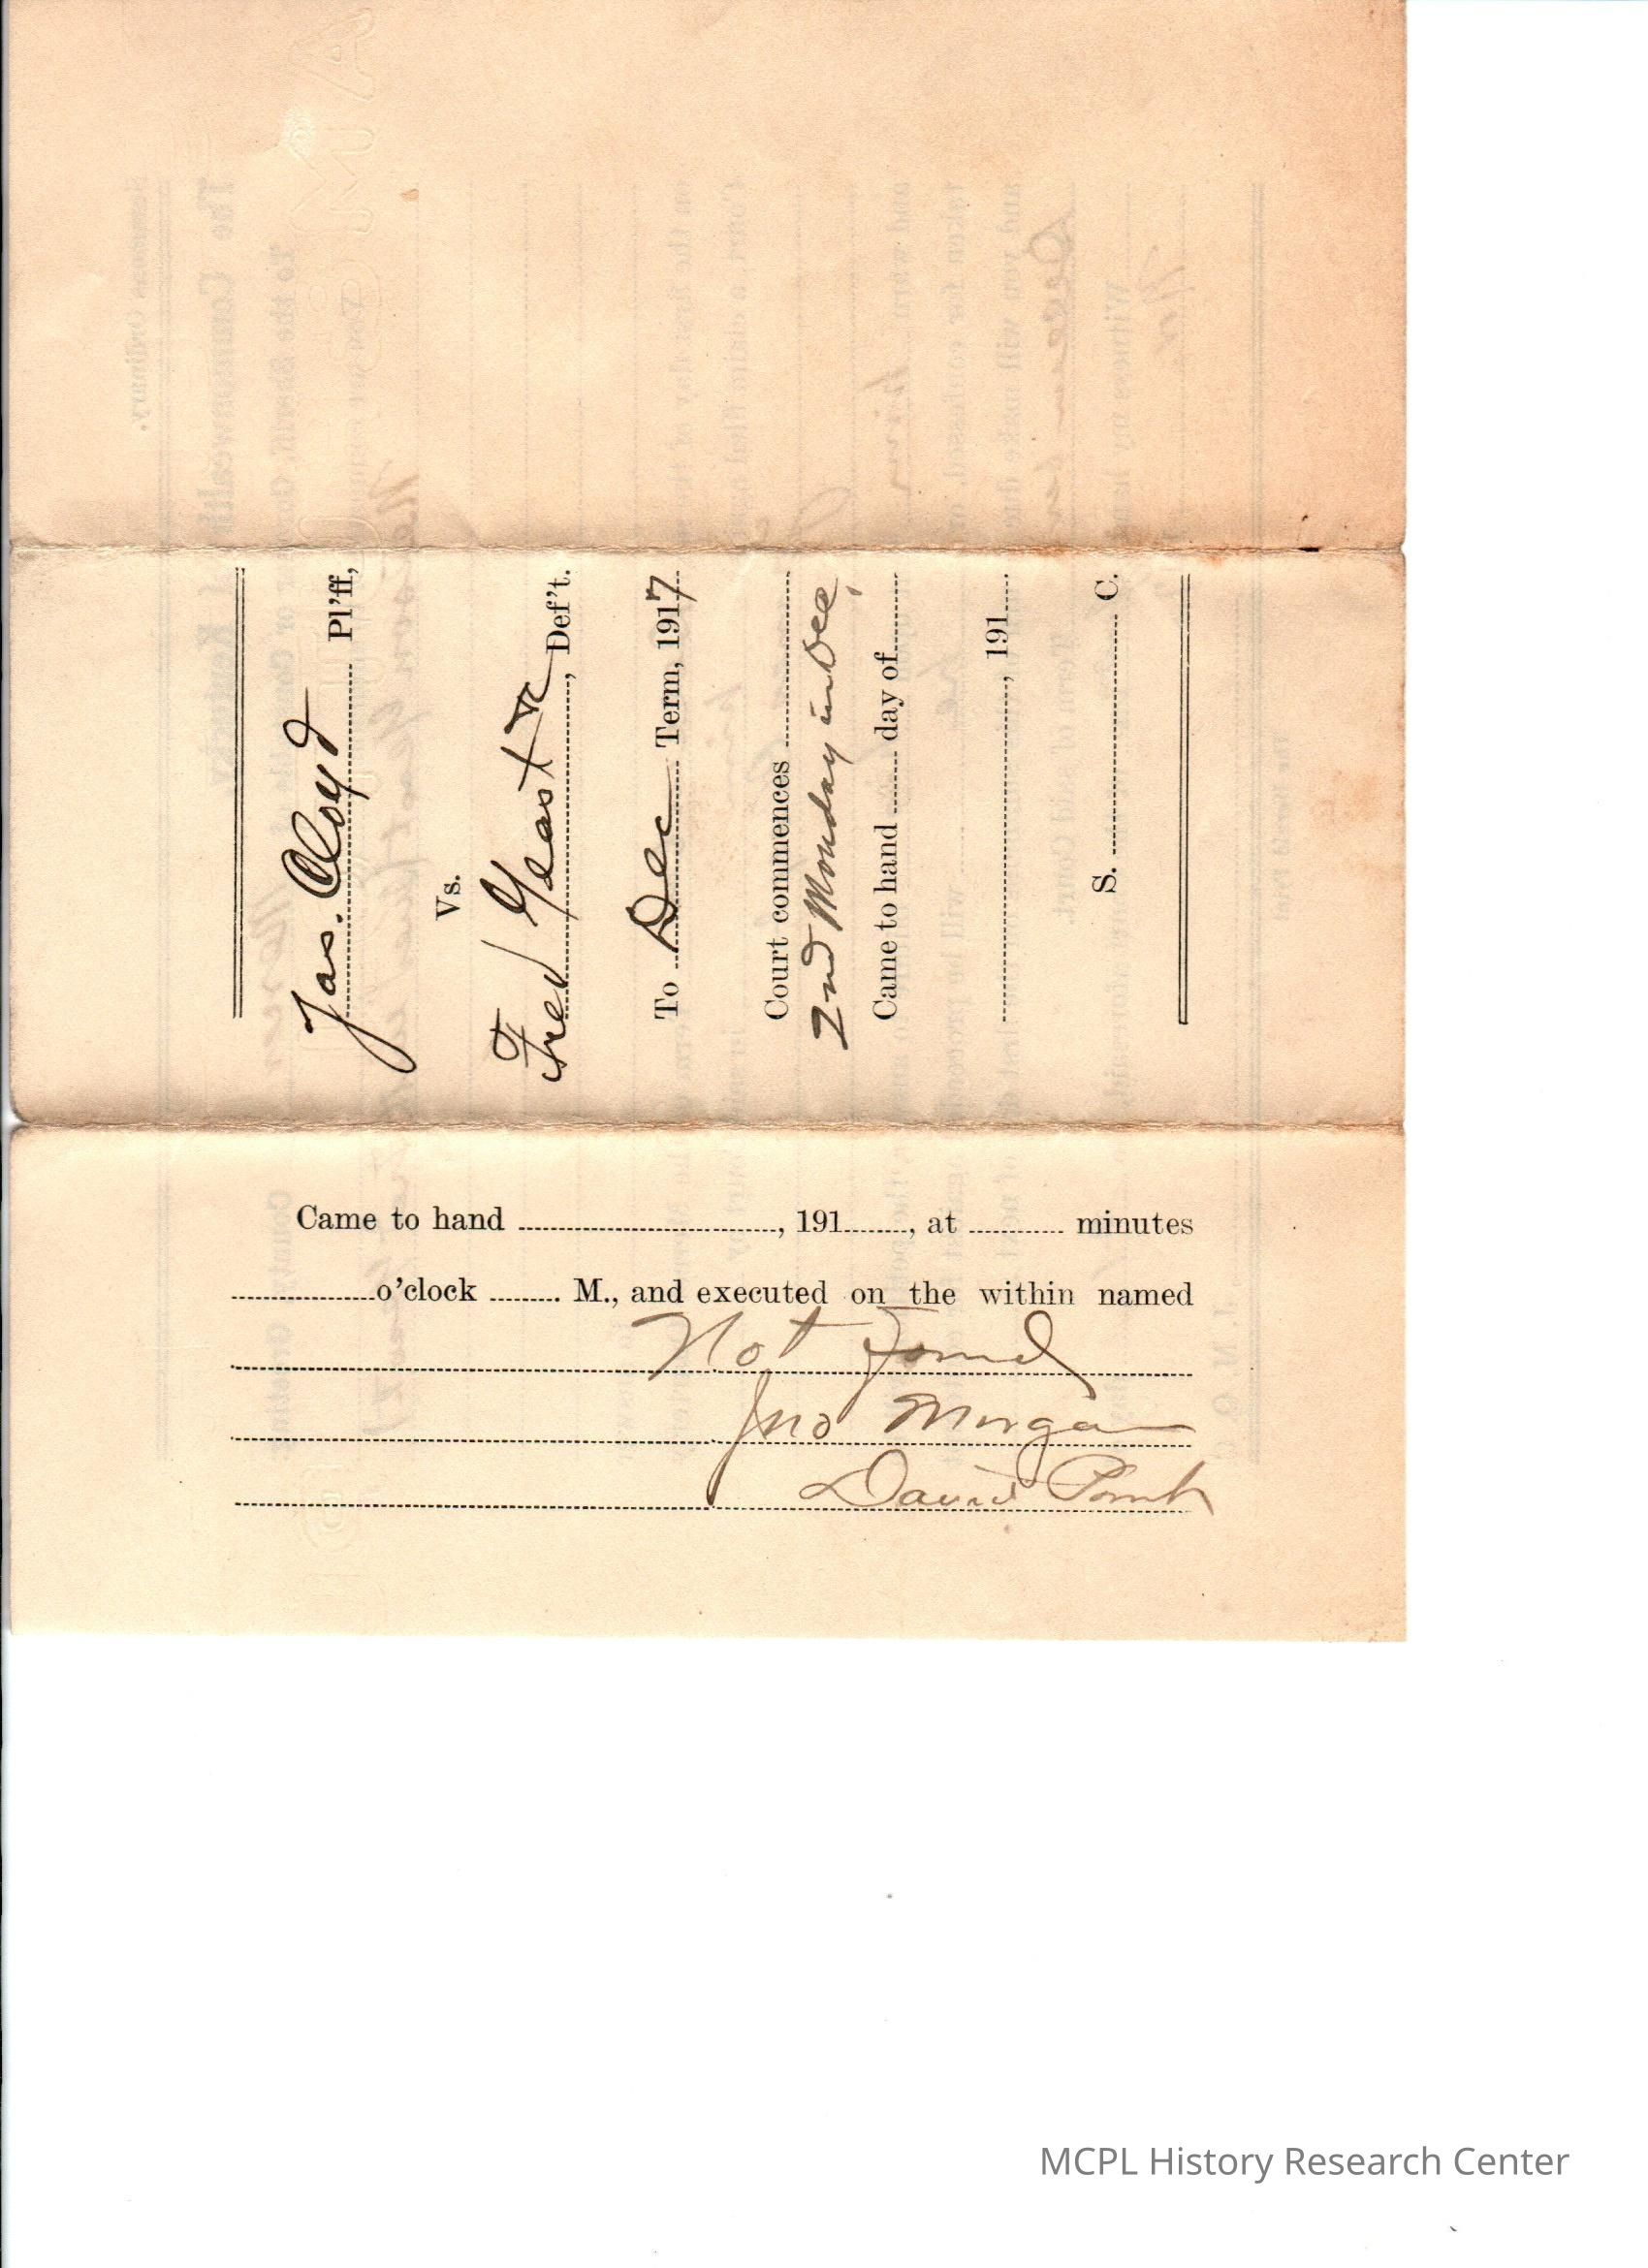 Jas. Cloyd Pl'ff,
Vs.
Fred Yeast &c, Def't.
To Dec Term, 1917
Court commences
2nd Monday in Dec,
Came to hand day of
, 191
S. C.
Came to hand , 191 , at minutes
o'clock M., and executed on the within named
Not Found
Jno Morgan
David
MCPL History Research Center